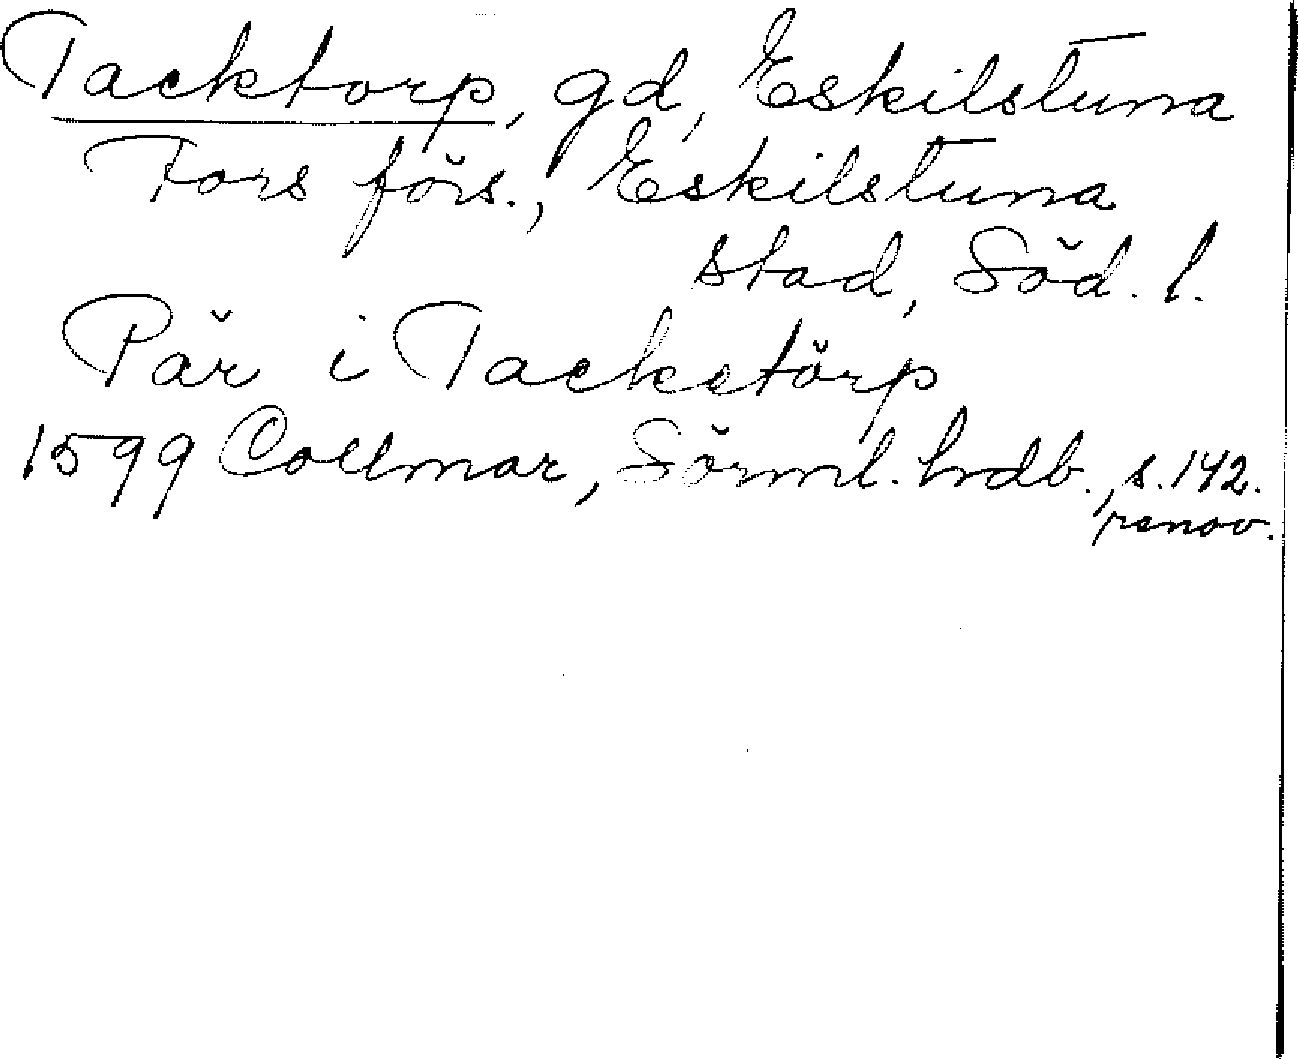 Tacktorp, gd, Eskilstuna
Fors förs., Eskilstuna
stad, Söd. l.
Pär i Tacketörp
1599 Collmar, Sörml. hdb., s. 142.
renov.